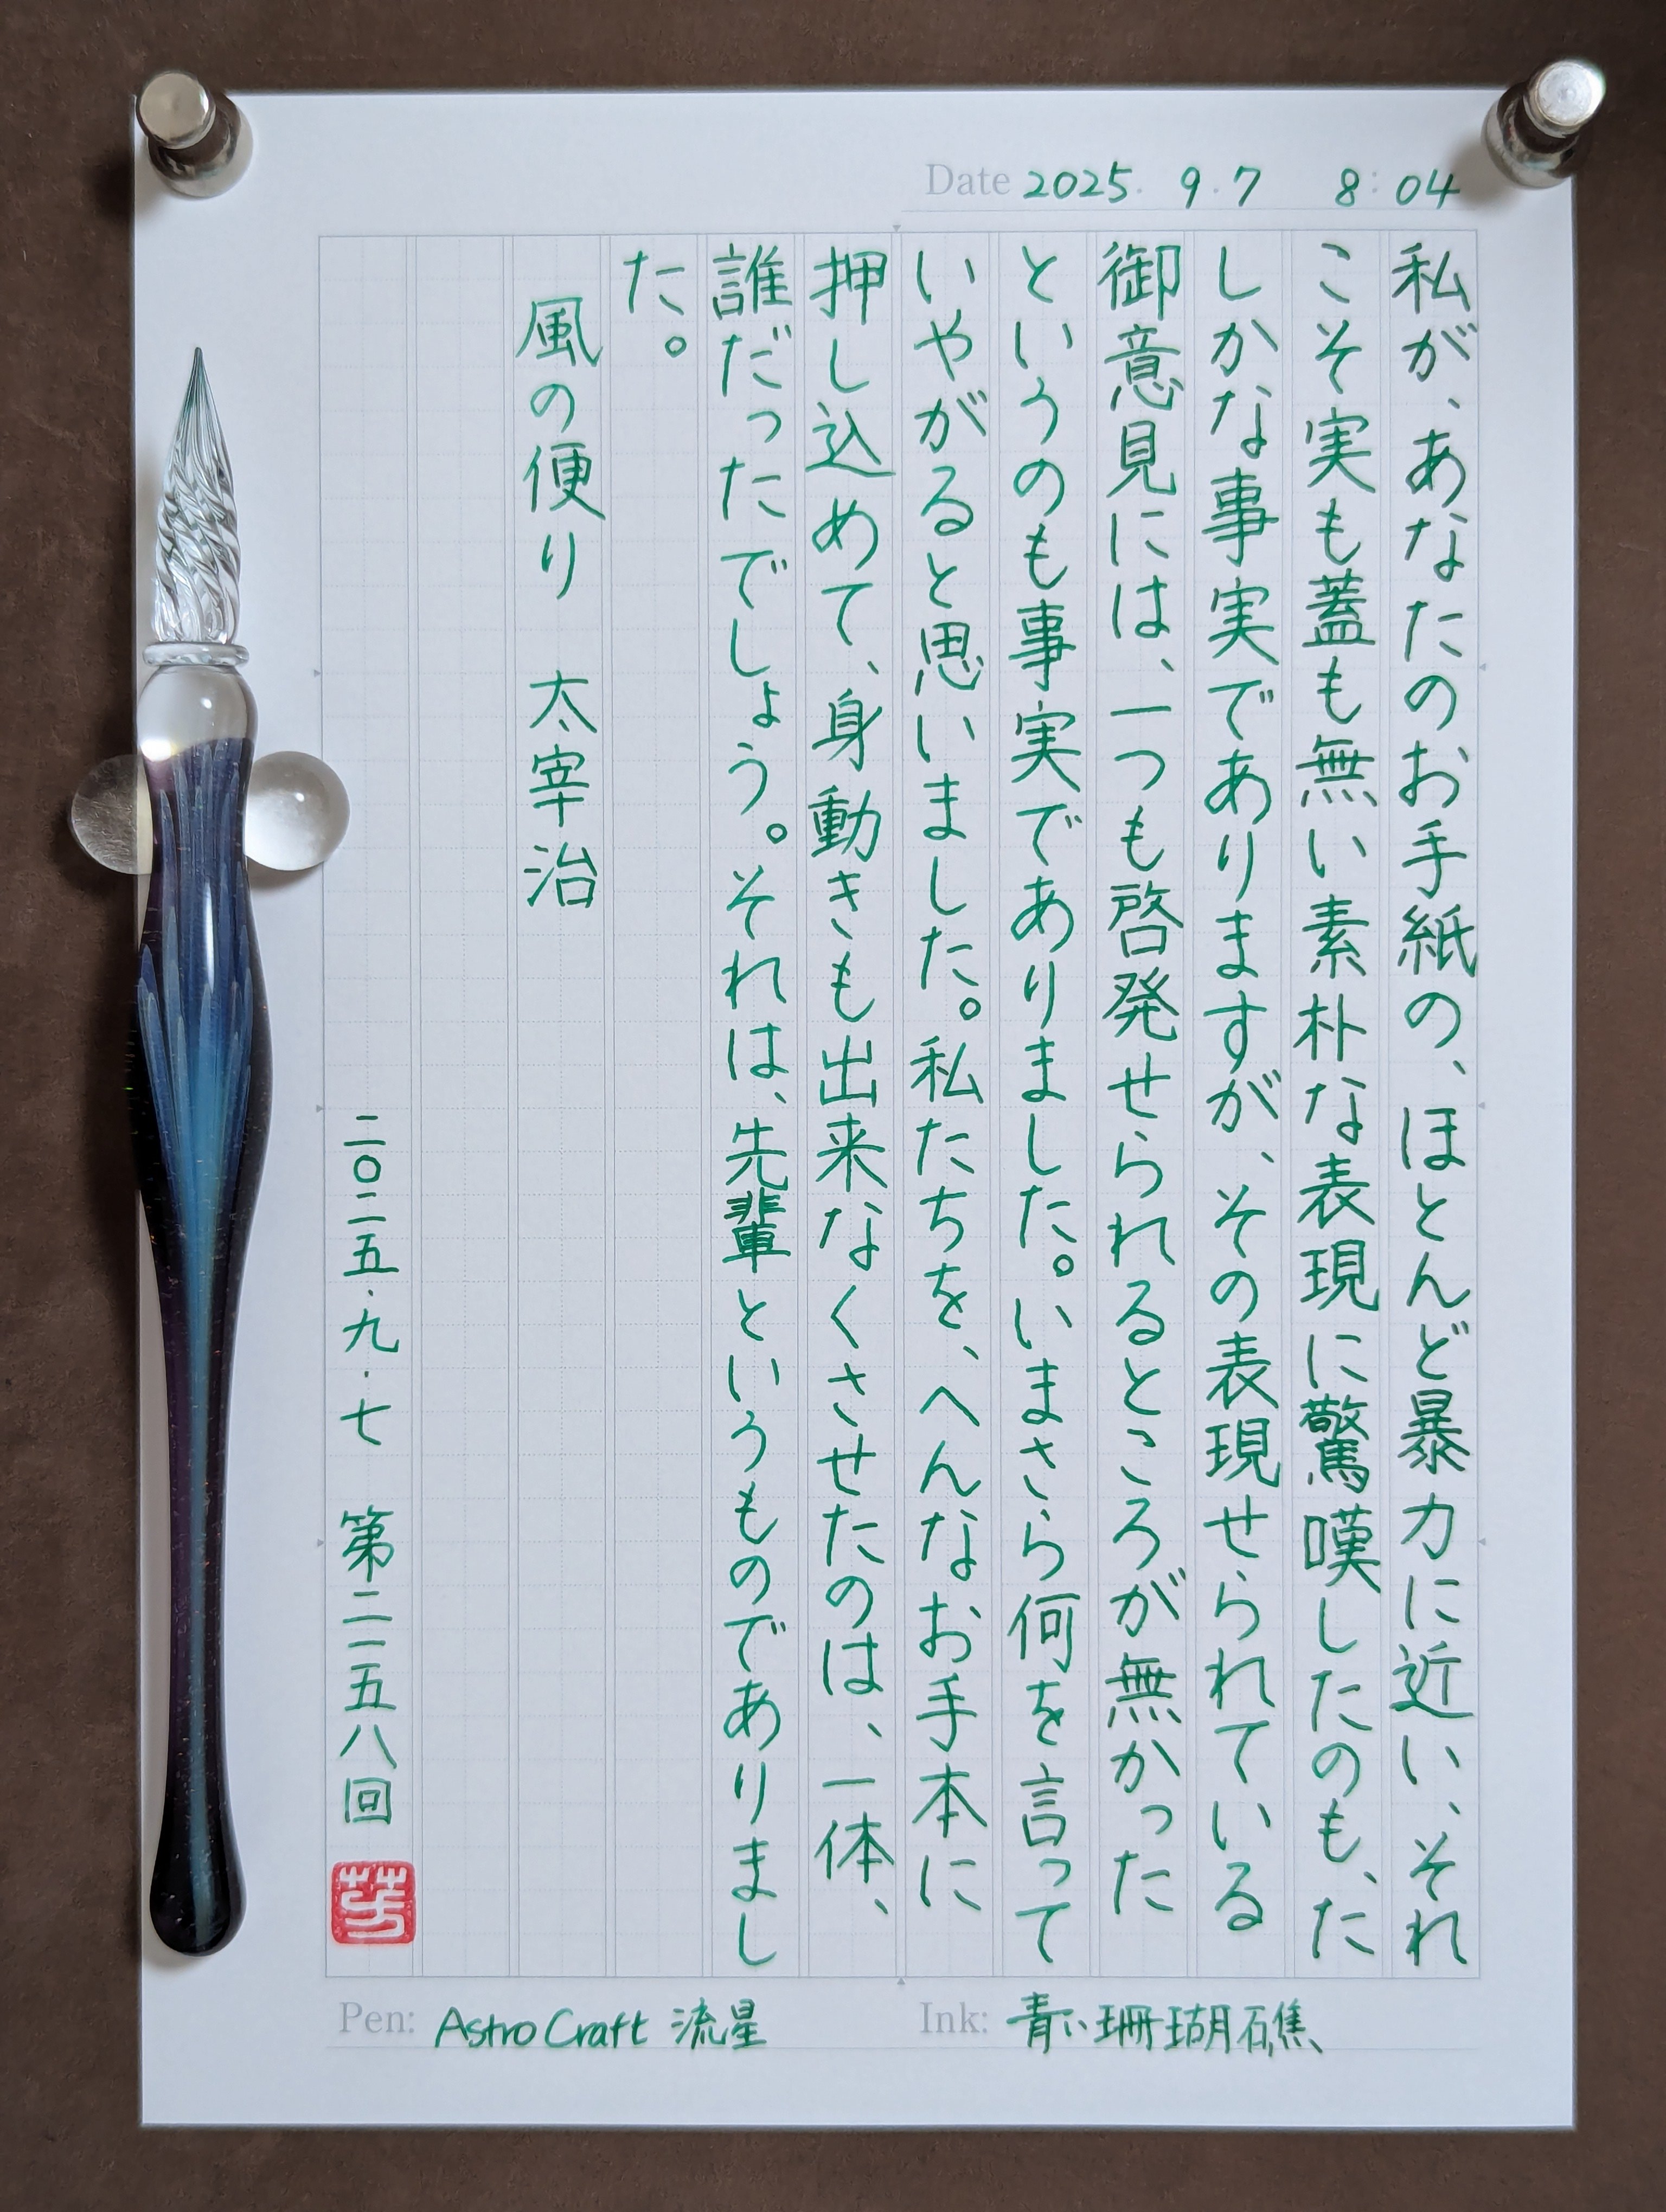 Date 2025. 9. 7 8:04
私が、あなたのお手紙の、ほとんど暴力に近い、それ
こそ実も蓋も無い素朴な表現に驚嘆したのも、た
しかな事実でありますが、その表現せられている
御意見には、一つも啓発せられるところが無かった
というのも事実でありました。いまさら何を言って
いやがると思いました。私たちを、へんなお手本に
押し込めて、身動きも出来なくさせたのは、一体、
誰だったでしょう。それは、先輩というものでありまし
た。
風の便り 太宰治
二〇二五・九・七 第二一五八回
芳
Pen: AstroCraft 流星
Ink: 青い珊瑚礁